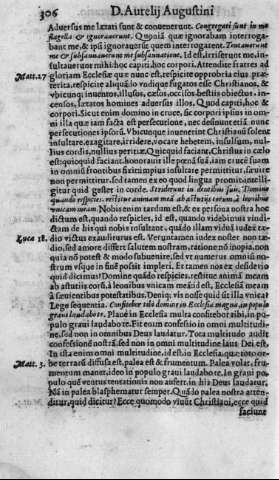 306 D. Aurelij Augustini
Aduersus me lætati sunt & conuenerunt. Congregati sunt in me
flagella & ignorauerunt. Quoniā quæ ignorabam interroga-
bant me, & ipsi ignorauerūt quem interrogarent. Tentauerunt
me & subsannauerunt me subsannatione, Id est, irriserunt me, in-
sultauerunt mihi: hoc capiti, hoc corpori. Attendite fratres ad
Matt. 27 gloriam Ecclesiæ quæ nunc est, respicite opprobria eius præ-
terita, respicite aliquādo vndique fugatos esse Christianos, &
vbicuque inuentos, illusos, cæsos, occisos, bestijs obiectos, in-
censos, lætatos homines aduersus illos. Quod capiti, hoc &
corpori. Sicut enim domino in cruce, sic corpori ipsius in om-
ni illa quæ iam facta est persecutione, nec desinunt etiā nunc
persecutiones ipsorū. Vbicunque inuenerint Christianū solent
insultare, exagitare, irridere, vocare hebetem, insulsum, nul-
lius cordis, nullius peritiæ. Quicquid faciant, Christus in cælo
est: quicquid faciant, honorauit ille pœnā suā, iam crucē suam
in omniū frontibus fixit: impius insultare permittitur, sæuire
non permittitur. sed tamen ex eo quod lingua promit, intelli-
gitur quid gestet in corde. Striderunt in me dentibus suis. Domine
quando respicies. restitue animam meā ab astutijs eorum, à leonibus
vnicam meam. Nobis enim tardum est, & ex persona nostra hoc
dictum est, quando respicies, id est, quando videbimus vindi-
ctam de his qui nobis insultant, quādo illam viduā iudex tæ-
Luce 18. dio victus exauditurus est. Veruntamen iudex noster non tæ-
dio, sed amore differt salutem nostram, ratione nō inopia, non
quia nō potest & modo subuenire, sed vt numerus omniū no-
strum vsque in finē possit impleri. Et tamen nos ex desiderio
quid dicimus? Domine quādo respicies, restitue animā meam
ab astutijs eorū, à leonibus vnicam meā id est, Ecclesiā meam
à sæuientibus potestatibus. Deniq; vis nosse quid sit illa vnica?
Lege sequentia. Confitebor tibi domine in Ecclesia magna, in populo
graui laudabo te. Planè in Ecclesia multa confitebor tibi, in po-
pulo graui laudabo te. Fit enim confessio in omni multitudi-
ne, sed non in omnibus Deus laudatur. Tota multitudo audit
confessionē nostrā, sed non in omni multitudine laus Dei est,
In ista enim omni multitudine, id est in Ecclesia, quæ toto or-
Matt. 3. be terrarū diffusa est, palea est & frumentum. Palea volat, fru-
mentum manet, ideo in populo graui laudabo te. In graui po-
pulo quē ventus tentationis non aufert, in his Deus laudatur,
Nā in palea blasphematur semper. Quādo palea nostra atten-
ditur, quid dicitur? Ecce quomodo viuūt Christiani, ecce quid
faciunt